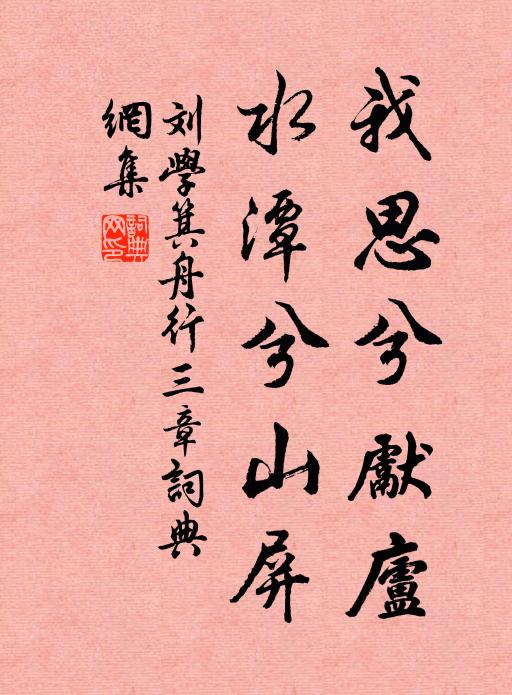 我思兮獻廬
水潭兮山屏
刘學箕舟行三章詞典
網集
詞典网印